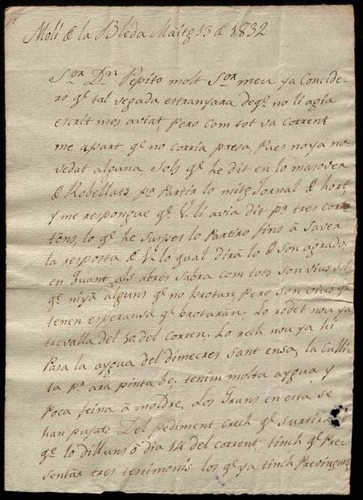 Molí de la Bleda Maitg 13 de 1832
Sor. Dn. Pepito molt Sor. meu ya concide
ro qe. tal vegada estranyara de qe. no li agia
escrit mes aviat pero com tot va corrent
me apart qe. no corria presa, Paes no ya no
vedat alguna. Sols qe. he dit en lo masover
d Robellats pa. Partir lo mitg Jornal d hort
y me respongue qe. V. li avia dit pa. tres cor
tons, lo qe. he suspes lo Partiro fins á saver
la resposta d V. lo qual dirá lo d son agrado,
en Quant als abres sabra com tots son vius sols
qe. niyá alguns qe. no brotan, pero son vius y
tenen esperansa qe. brotarán. Lo rodet noya
trevalla del 10 del corren. Lo rech noya hi
Para la aygua del dimecres Sant ensa, la Culli
ta pr. ara pinta be, tenim molta aygua y
Poca feina á moldre, Los Grans en esta se
han pujats. Del pediment crech qe. surtira
qe. lo dilluns ó dia 14 del corrent tinch qe. Pre
sentar tres testimonis los qe. ya tinch Previnguts